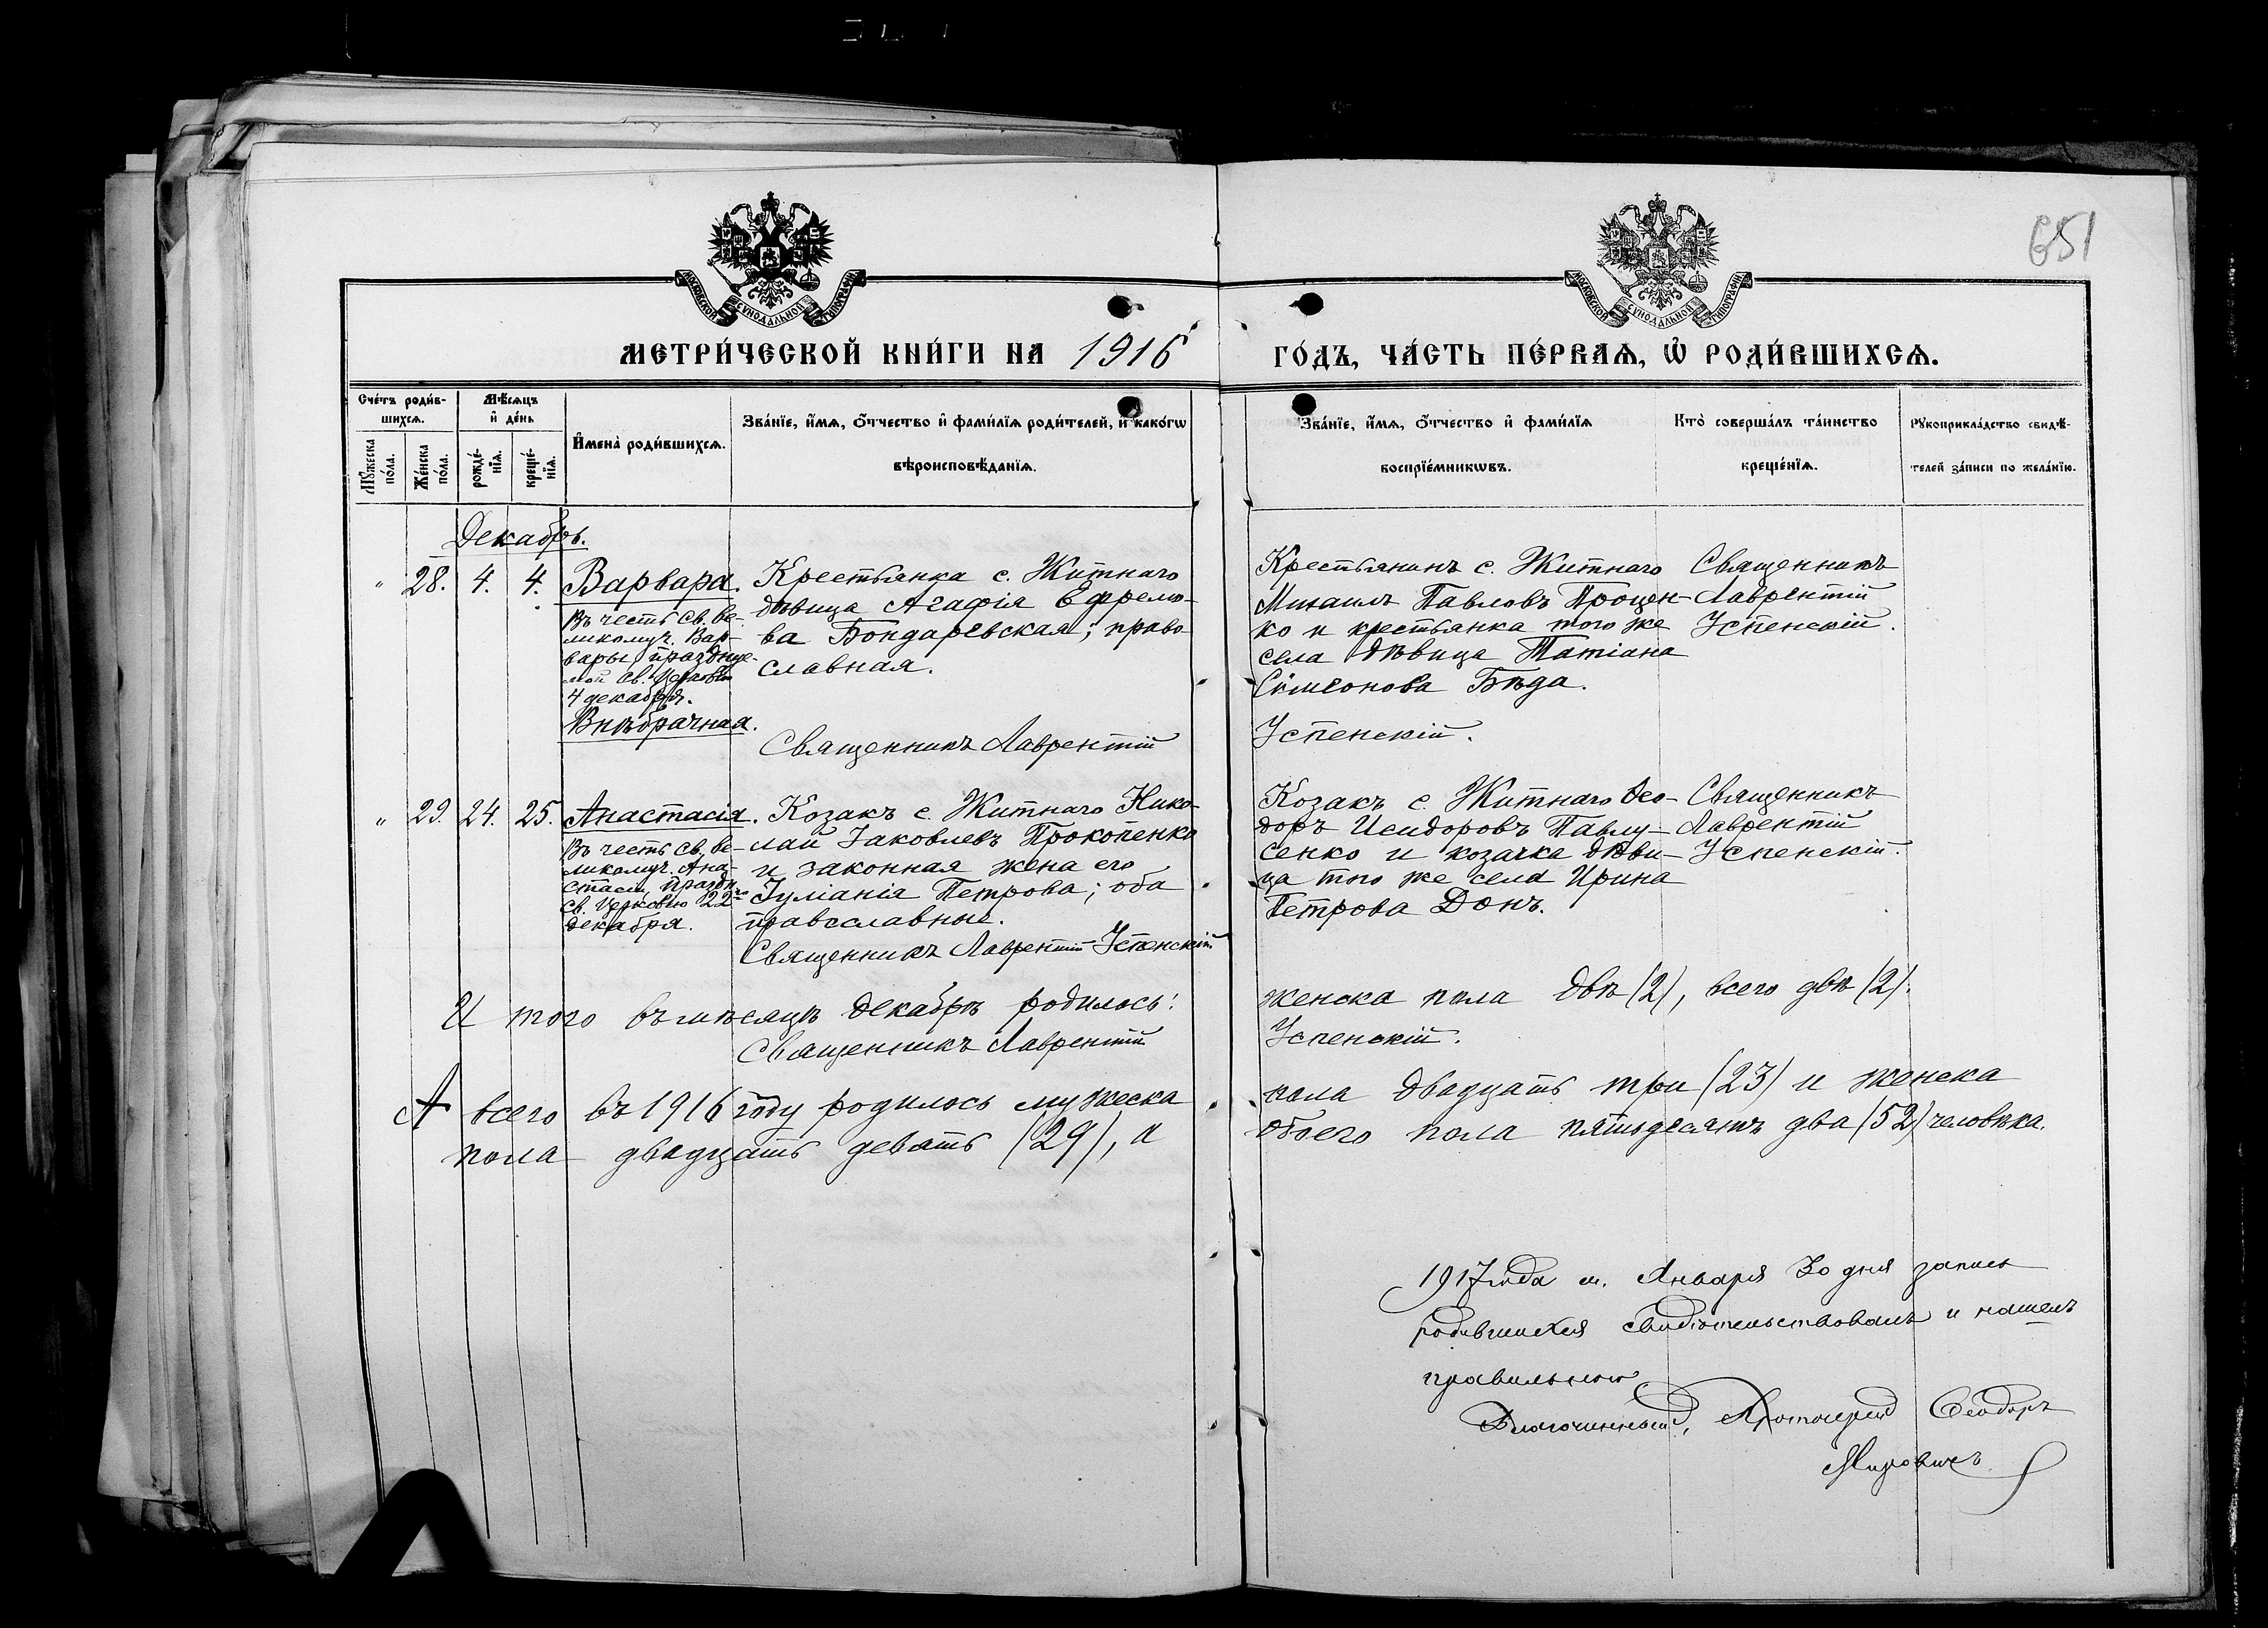 651
МОСКОВСКОЙ СУНОДАЛЬНОЙ ТИПОГРАФІИ
МОСКОВСКОЙ СУНОДАЛЬНОЙ ТИПОГРАФІИ
МЕТРИ́ЧЕСКОЙ КНИ́ГИ НА 1916
ГО́ДЪ, ЧА́СТЬ ПЕ́РВАѦ, Ѽ РОДИ́ВШИХСѦ.
Сче́тъ роди́в-
шихсѧ.
Мѣ́сѧцъ
и҆ де́нь
Мꙋ́жеска
по́ла.
Же́нска
по́ла.
рожде́-
нїѧ.
креще́-
нїѧ.
И҆мена̀ роди́вшихсѧ.
Зва́нїе, и҆́мѧ, ѻ҆́тчество и҆ фами́лїѧ роди́телей, и҆ како́гѡ
вѣроисповѣ́данїѧ.
Зва́нїе, и҆́мѧ, ѻ҆́тчество и҆ фами́лїѧ
воспрїе́мникѡвъ.
Кто̀ соверша́лъ та́инство
креще́нїѧ.
Рꙋкоприкла́дство свидѣ́-
телей за́писи по жела́нїю.
Декабрь.
" 28. 4. 4. Варвара.
Въ честь св. ве-
ликомуч. Вар-
вары, празднуе-
мой св. Церковію
4 декабря.
Внѣбрачная.
Крестьянка с. Житнаго
дѣвица Агафія Ефремо-
ва Бондаревская; право-
славная.
Священникъ Лаврентій
Крестьянинъ с. Житнаго
Михаилъ Павловъ Процен-
ко и крестьянка того же
села дѣвица Татіана
Симеонова Бѣда.
Успенскій.
Священникъ
Лаврентій
Успенскій.
" 29. 24. 25. Анастасія.
Въ честь св. ве-
ликомуч. Ана-
стасіи, праздн.
св. Церковію 22го
декабря.
Козакъ с. Житнаго Нико-
лай Іаковлевъ Прокопенко
и законная жена его
Іуліанія Петрова; оба
православные.
Священникъ Лаврентій Успенскій
Козакъ с. Житнаго Ѳео-
доръ Исидоровъ Павлу-
сенко и козачка дѣви-
ца того же села Ирина
Петрова Донъ.
Священникъ
Лаврентій
Успенскій.
И того въ мѣсяцѣ Декабрѣ родилось:
женска пола двѣ (2), всего двѣ (2).
Священникъ Лаврентій
Успенскій.
А всего въ 1916 году родилось мужеска
пола двадцать три (23) и женска
пола двадцать девять (29), а
обоего пола пятьдесятъ два (52) человѣка.
1917 года м. Января 30 дня запись
родившихся свидѣтельствовалъ и нашелъ
правильною
Благочинный, Протоіерей Ѳеодоръ